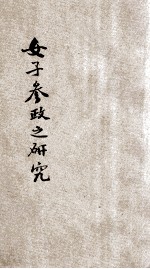 女子参政之研究